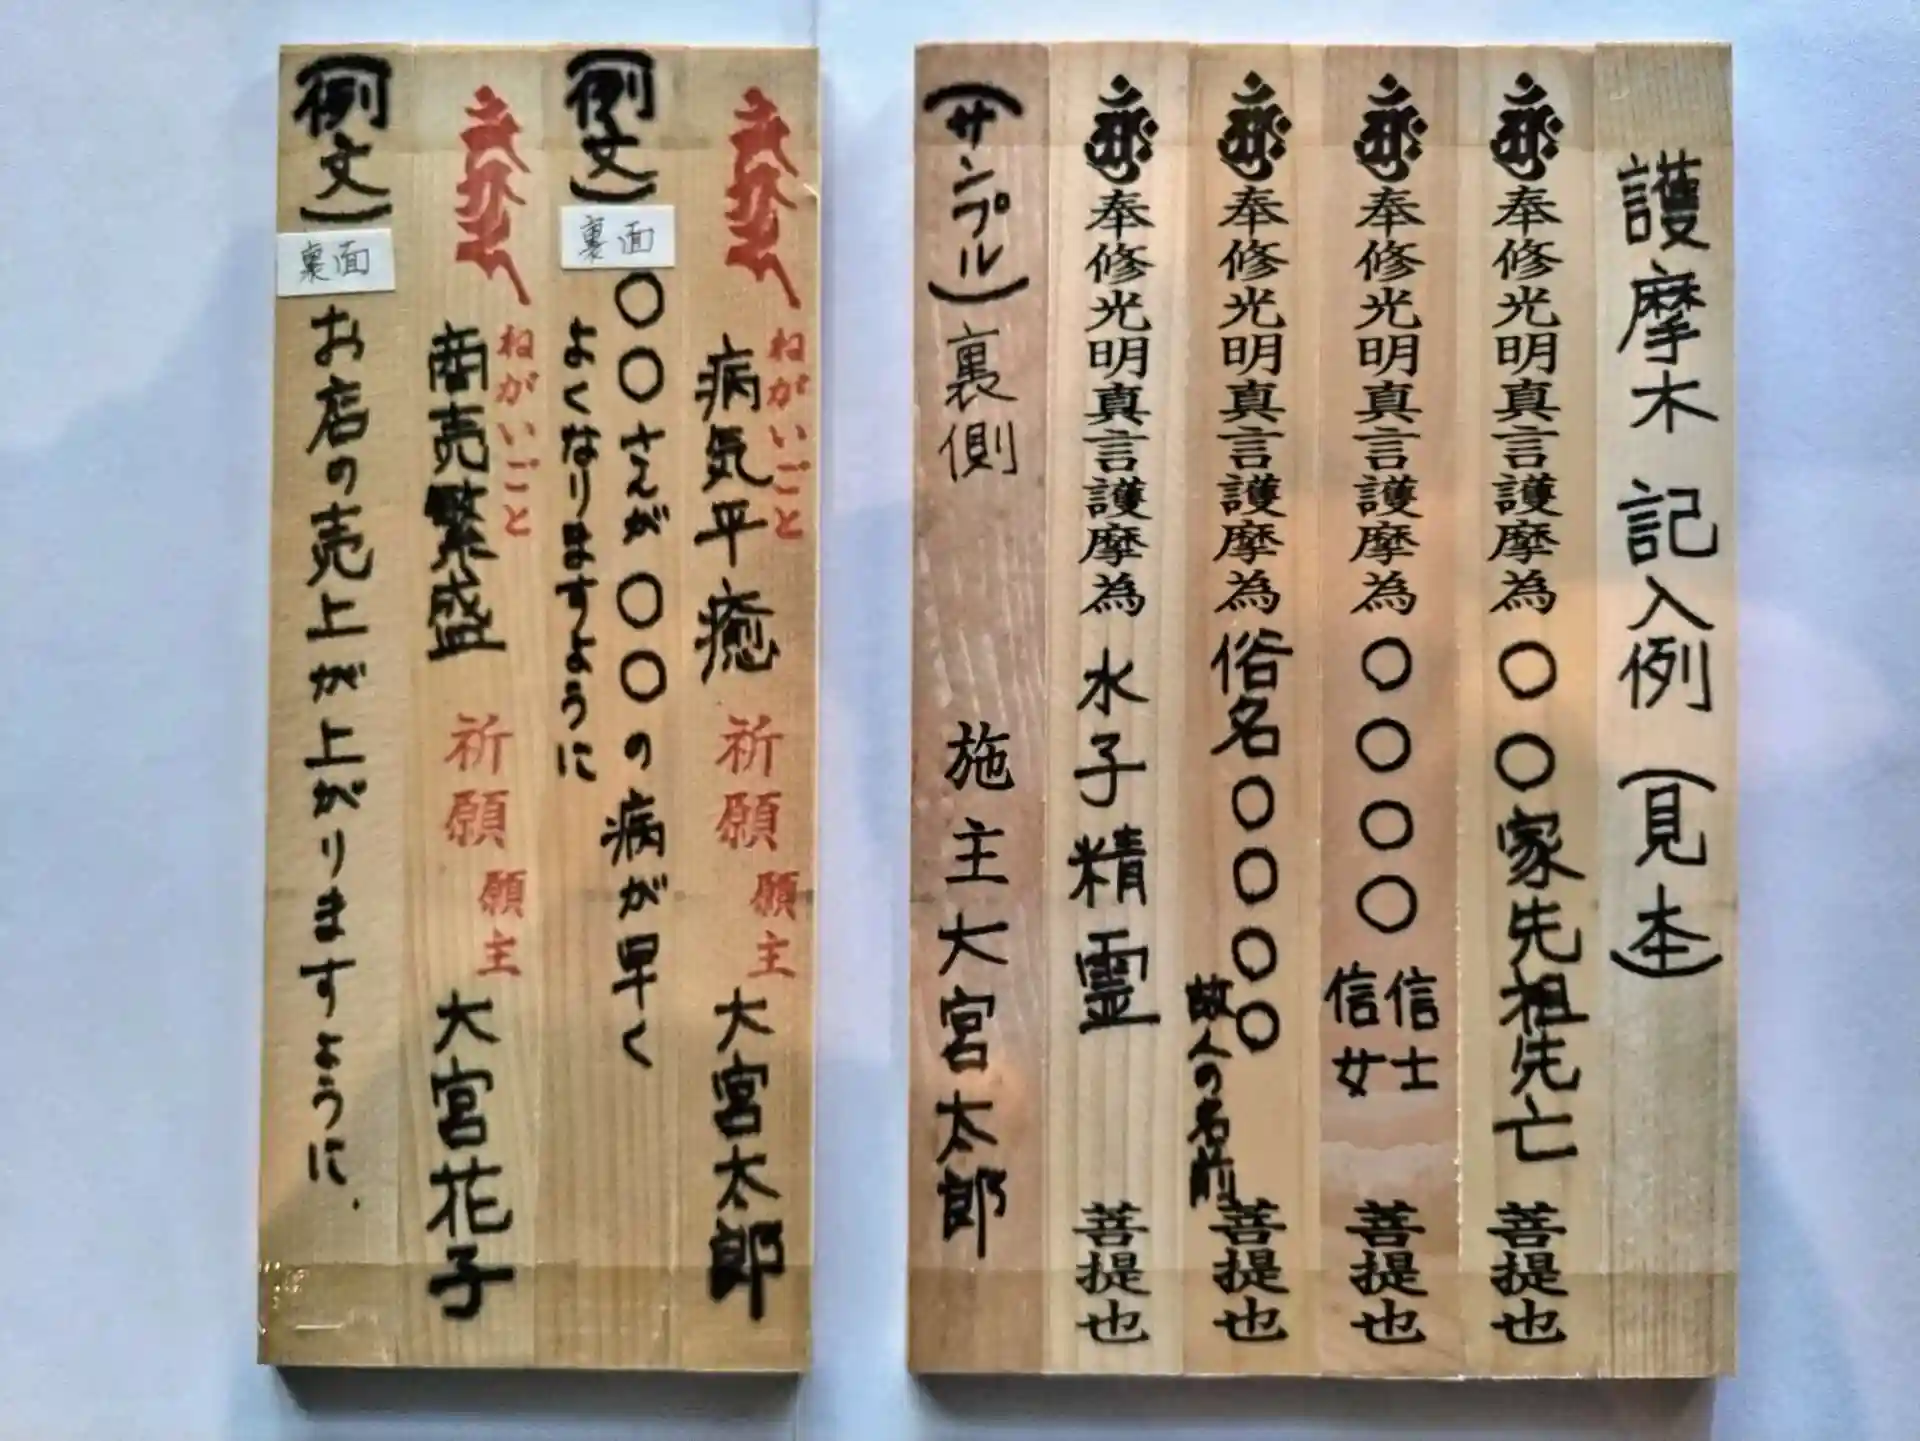 護摩木 記入例 (見本)
奉修光明真言護摩為 〇〇家先祖先亡 菩提也
奉修光明真言護摩為 〇〇〇〇 信士 信女 菩提也
奉修光明真言護摩為 俗名〇〇〇〇 故人の名前 菩提也
奉修光明真言護摩為 水子精霊 菩提也
(サンプル) 裏側 施主 大宮太郎
ねがいごと
病気平癒 祈願 願主 大宮太郎
(例文) 裏面
〇〇さんが〇〇の病が早く
よくなりますように
ねがいごと
商売繁盛 祈願 願主 大宮花子
(例文) 裏面
お店の売上が上がりますように.